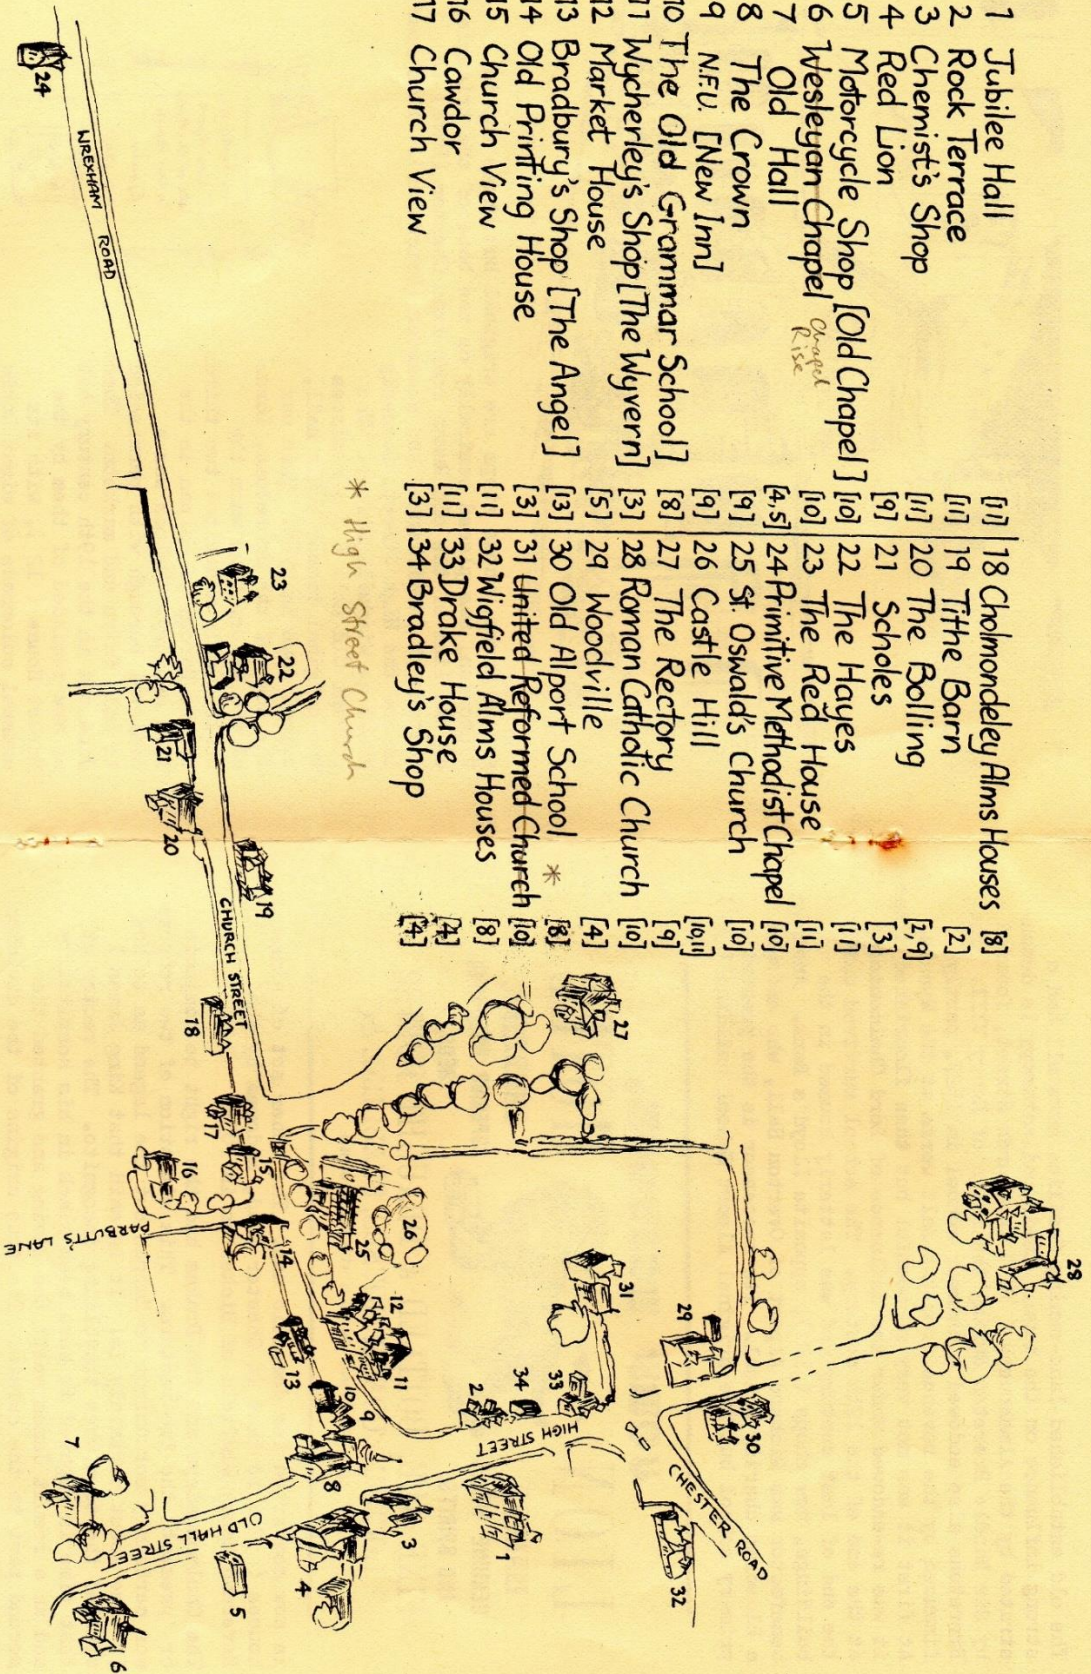 1 Jubilee Hall [11]
2 Rock Terrace [11]
3 Chemist's Shop [11]
4 Red Lion [9]
5 Motorcycle Shop [Old Chapel] [10]
6 Wesleyan Chapel Chapel Rise [10]
7 Old Hall [4,5]
8 The Crown [9]
9 N.F.U. [New Inn] [9]
10 The Old Grammar School] [8]
11 Wycherley's Shop [The Wyvern] [3]
12 Market House [5]
13 Bradbury's Shop [The Angel] [13]
14 Old Printing House [3]
15 Church View [11]
16 Cawdor [11]
17 Church View [3]
18 Cholmondeley Alms Houses [8]
19 Tithe Barn [2]
20 The Bolling [2,9]
21 Scholes [3]
22 The Hayes [11]
23 The Red House [11]
24 Primitive Methodist Chapel [10]
25 St. Oswald's Church [10]
26 Castle Hill [10,11]
27 The Rectory [9]
28 Roman Catholic Church [10]
29 Woodville [4]
30 Old Alport School [8]
31 United Reformed Church * [10]
32 Wigfield Alms Houses [8]
33 Drake House [4]
34 Bradley's Shop [4]
* High Street Church
28
27
29
30
31
CHESTER ROAD
32
33
34
2
HIGH STREET
1
26
25
12
11
23
22
19
CHURCH STREET
18
17
15
16
14
PARBUTT'S LANE
13
10
9
8
3
4
5
OLD HALL STREET
7
6
21
20
WREXHAM ROAD
24